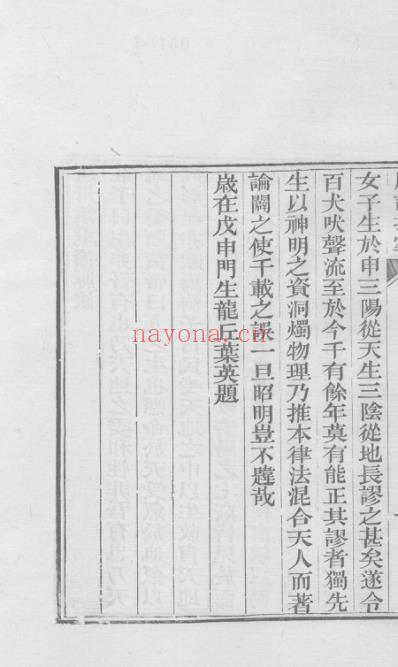 女子生於申三陽從天生三陰從地長謬之甚矣遂令
百犬吠聲流至於今千有餘年莫有能正其謬者獨先
生以神明之資洞燭物理乃推本律法混合天人而著
論闢之使千載之誤一旦昭明豈不韙哉
歲在戊申門生龍丘葉英題
nayona.cn